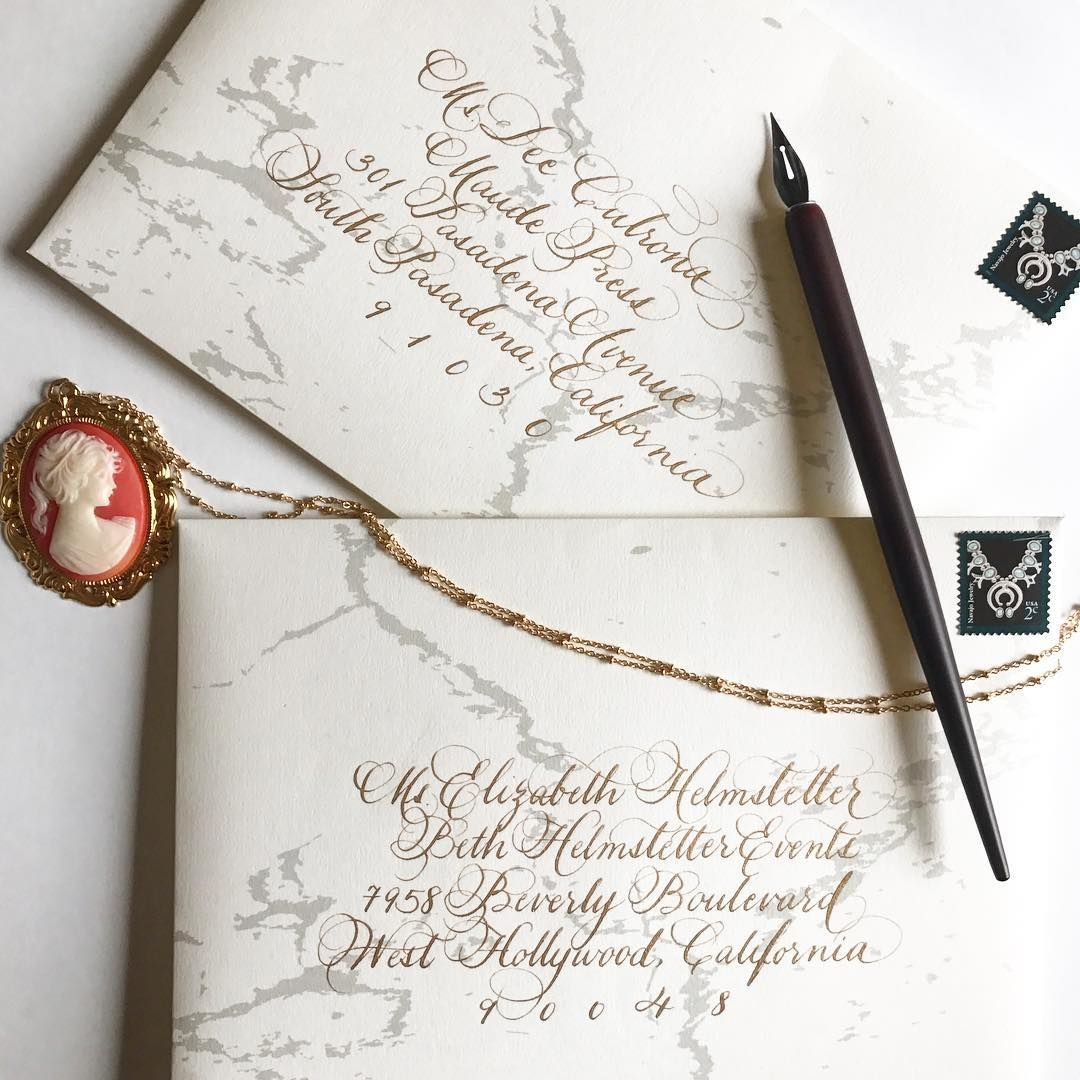 Ms. Dee Cutrona
Maude Press
301 Pasadena Avenue
South Pasadena, California
9 1 0 3 0
Navajo Jewelry
USA
2c
Navajo Jewelry
USA
2c
Ms. Elizabeth Helmstetter
Beth Helmstetter Events
7958 Beverly Boulevard
West Hollywood, California
9 0 0 4 8